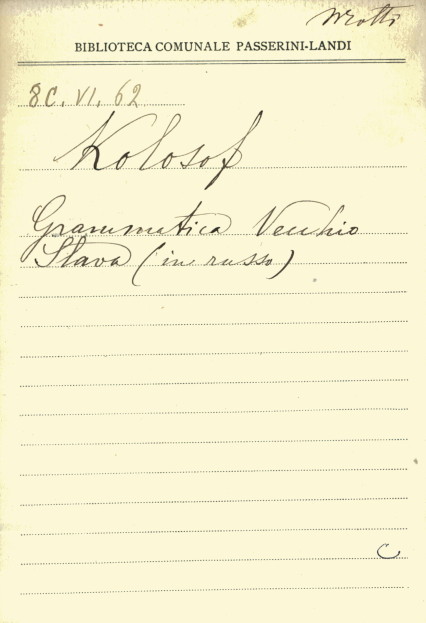 BIBLIOTECA COMUNALE PASSERINI-LANDI
8C. VI. 62
Kolosof
Grammatica Vecchio
Slava (in russo)
C